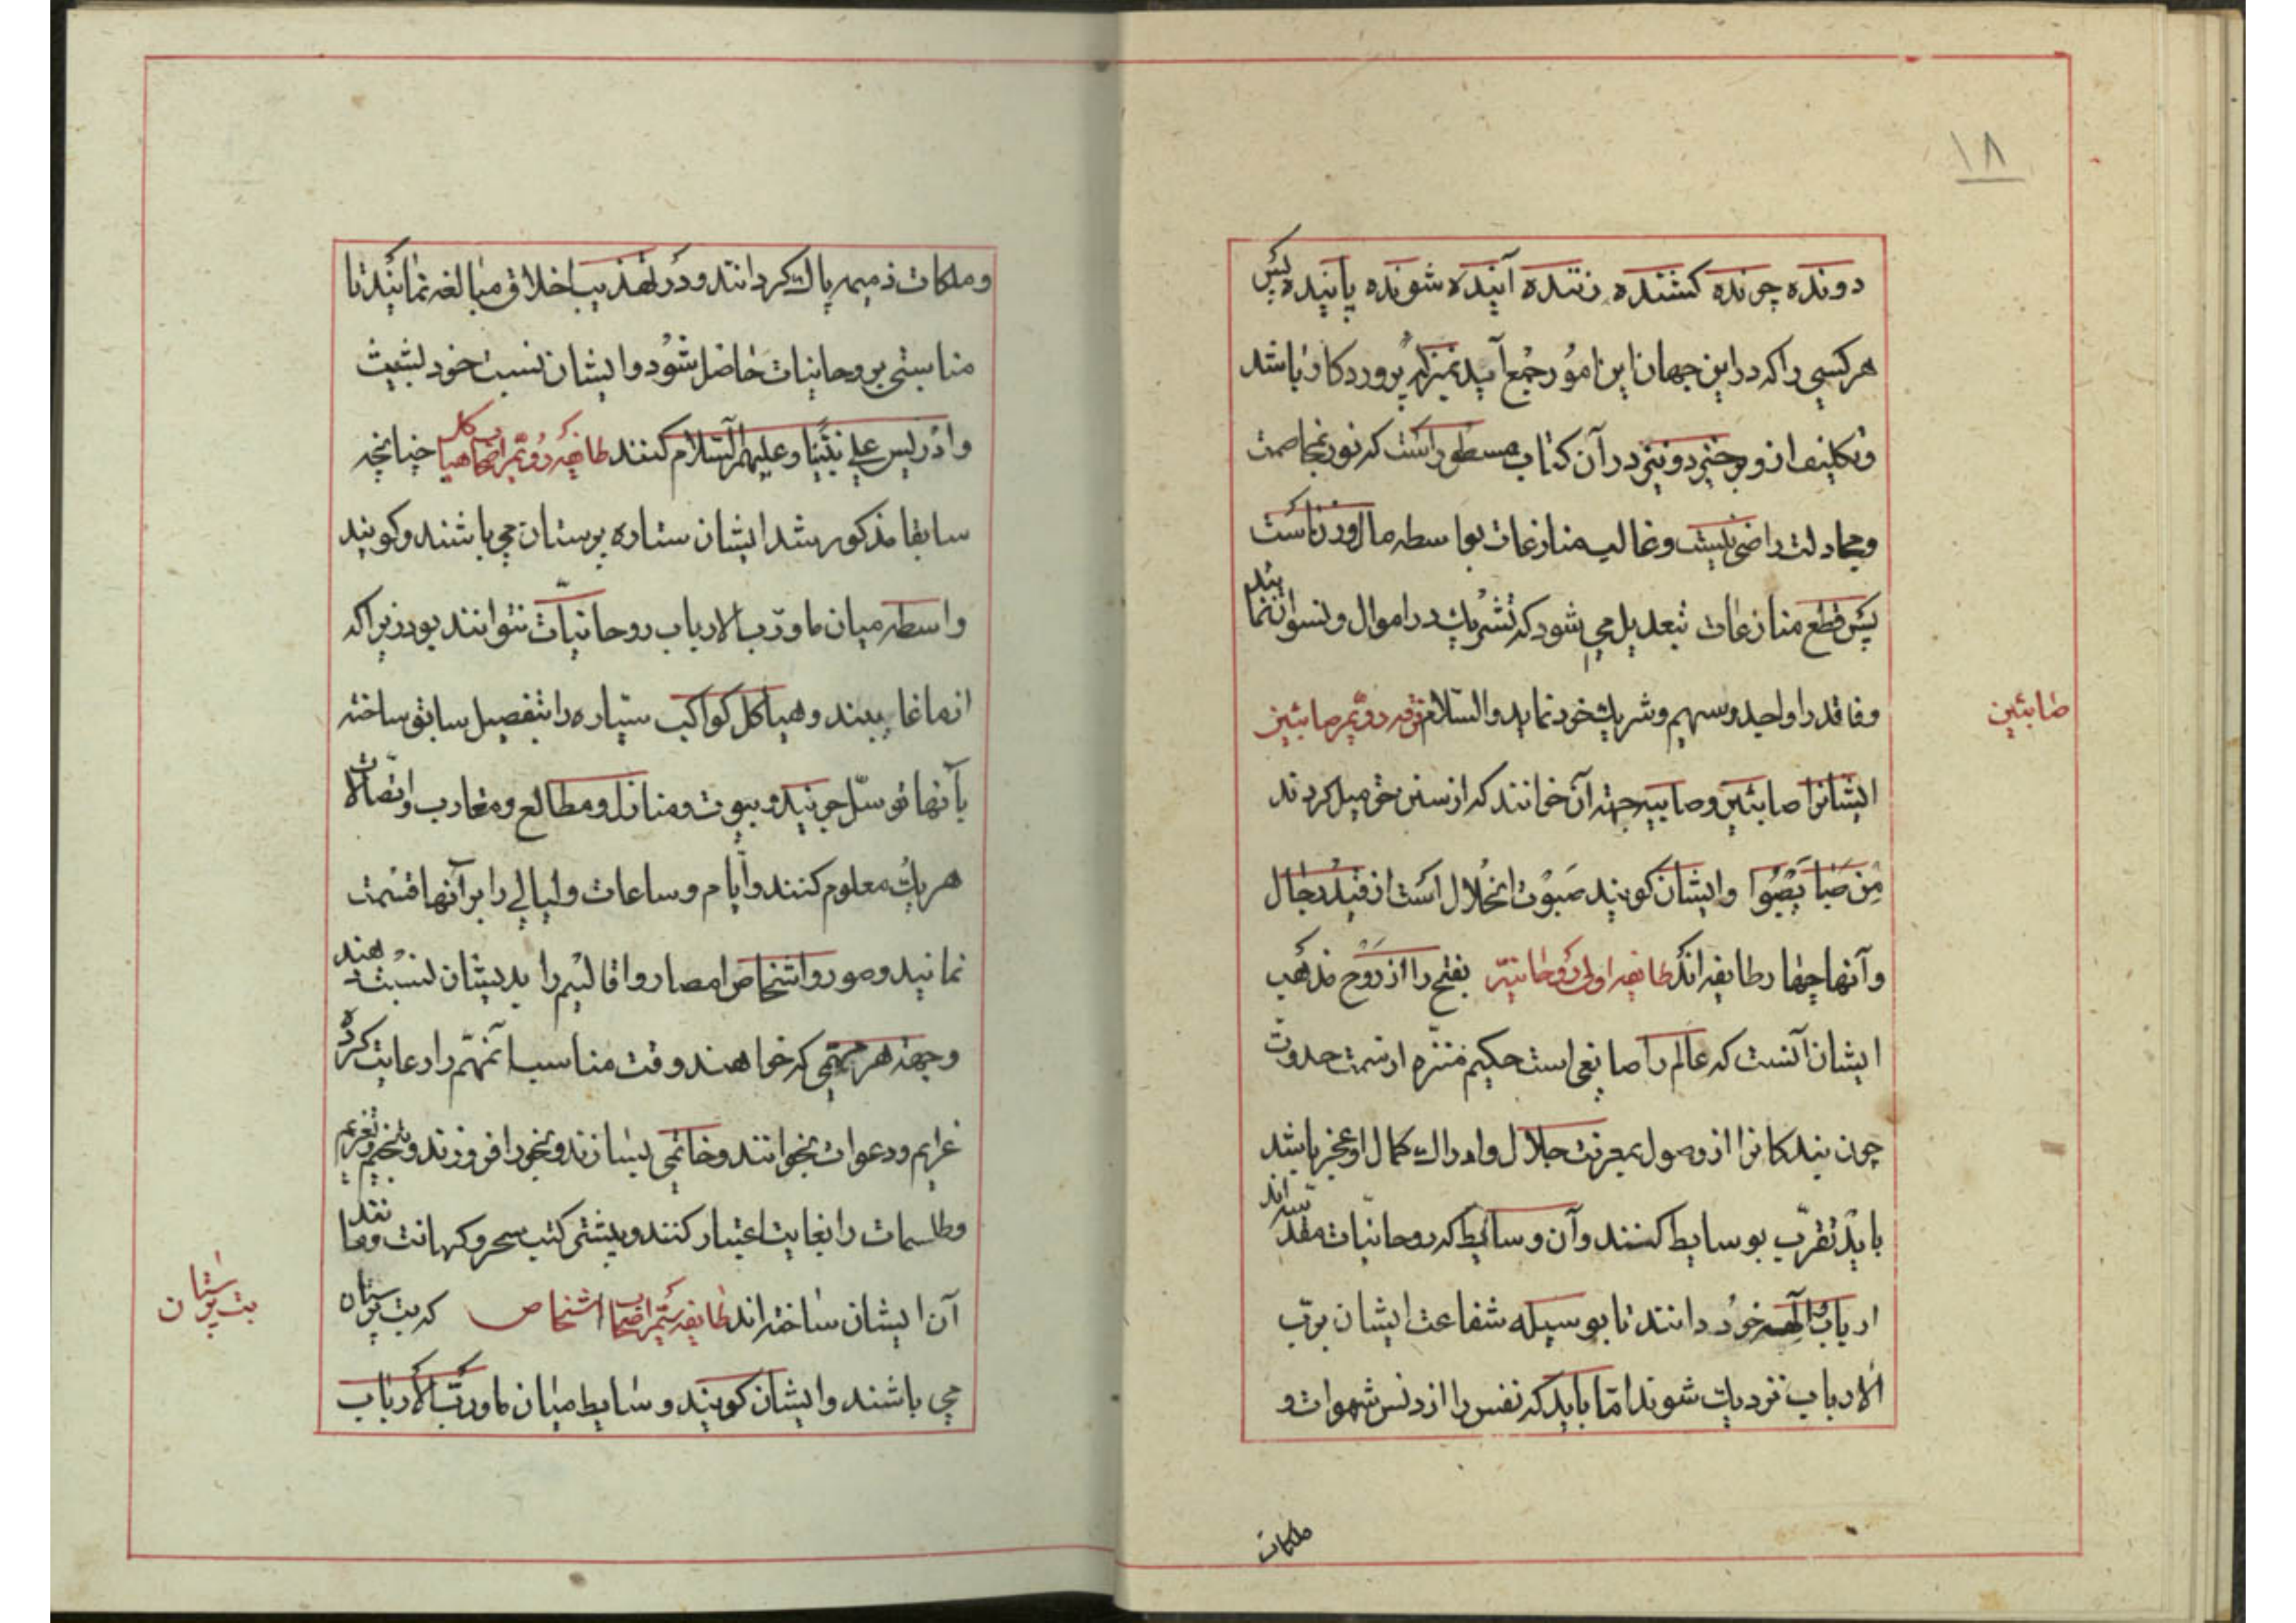 ۱۸
دونده چرنده کشنده زننده آینده شونده پاینده پس
هر کسی را که در این جهان این امور جمع آید بمنزله پروردکار باشد
و تکلیف از و برخیزد و نیز در آن کتاب مسطور است که نور بمخاصمت
و مجادلت راضی نیست و غالب منازعات بواسطه مال و زنان است
پس قطع منازعات بتعدیل می شود که تشریک در اموال و نسوان نمایند
و فاقد را واجد و سهیم و شریک خود نماید والسلام فرقه دویم صابئین
صابئین
ایشانرا صابئین و صابیه جهته آن خوانند که از سنن حق میل کردند
مِن صَبا یَصْبُوا و ایشان کویند صَبوْت انحلال است از قید رجال
و آنها چهار طایفه اند طایفه اولی روحانیّه بفتح را از رَوْح مذهب
ایشان آنست که عالم را صانعی است حکیم منزّه از سمت حدوث
چون بندکانرا از وصول بمعرفت جلال و ادراک کمال او عجز باشد
باید تقرّب بوسایط کنند و آن وسائط که روحانیّات مقدّسه اند
ارباب و آلهه خود دانند تا بوسیله شفاعت ایشان بربّ
الارباب نزدیک شوند امّا باید که نفس را از دنس شهوات و
ملکات
و ملکات ذمیمه پاک کردانند و در تهذیب اخلاق مبالغه نمایند تا
مناسبتی بروحانیات حاصل شود و ایشان نسبت خود بشیث
و ادریس علی نبیّنا و علیهم السّلام کنند طایفه دویّم اصحاب هیاکل چنانچه
سابقا مذکور شد ایشان ستاره پرستان می باشند و کویند
واسطه میان ما و ربّ الارباب روحانیّات نتوانند بود زیرا که
از ما غایبند و هیاکل کواکب سیّاره را بتفصیل سابق ساخته
بآنها توسّل جویند و بیوت و منازل و مطالع و مغارب و اتصالات
هر یک معلوم کنند و ایّام و ساعات و لیالی را بر آنها قسمت
نمایند و صور و اشخاص امصار و اقالیم را بدیشان نسبت دهند
و جهته هر مهمّی که خواهند وقت مناسب آنمهّم را رعایت کرده
عزایم و دعوات بخوانند و خاتمی بسازند و بخور افروزند و تنجیم و تعزیم
و طلسمات را بغایت اعتبار کنند و بیشتر کتب سحر و کهانت و مانند
آن ایشان ساخته اند طایفه سیّم اصحاب اشخاص که بت پرستان
بت پرستان
می باشند و ایشان کویند وسایط میان ما و ربّ الارباب